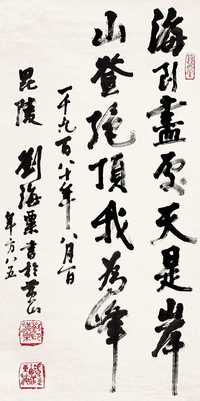 海到盡處天是岸
山登絕頂我為峰
一千九百八十年八月一日
毘陵 劉海粟書於黄山
年方八五